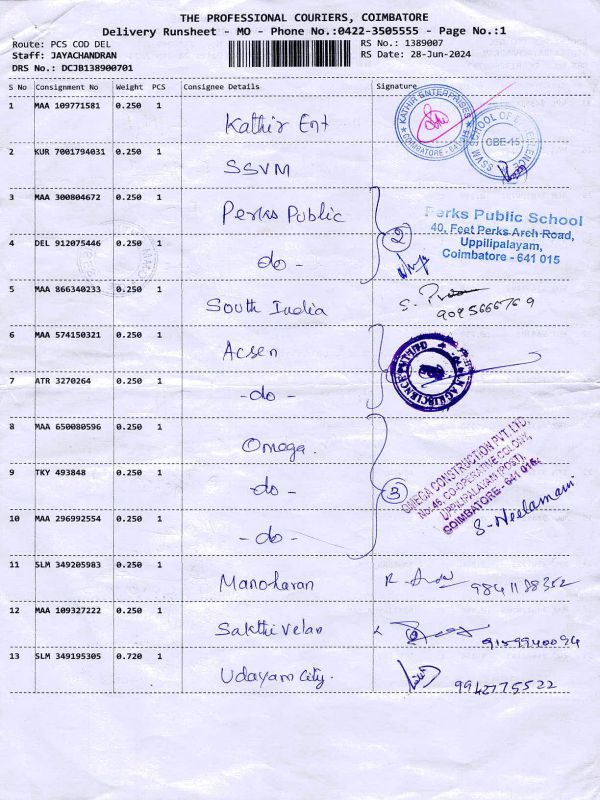 THE PROFESSIONAL COURIERS, COIMBATORE
Delivery Runsheet - MO - Phone No.:0422-3505555 - Page No.:1
Route: PCS COD DEL
Staff: JAYACHANDRAN
DRS No.: DCJB138900701
RS No.: 1389007
RS Date: 28-Jun-2024
S No Consignment No Weight PCS Consignee Details Signature
1 MAA 109771581 0.250 1 Kathir Ent
KATHIR ENTERPRISES COIMBATORE - 641 015
2 KUR 7001794031 0.250 1 SSVM
SSVM SCHOOL OF EXCELLENCE CBE-15
3 MAA 300804672 0.250 1 Perks Public
4 DEL 912075446 0.250 1 - do -
2
Perks Public School
40, Feet Perks Arch Road,
Uppilipalayam,
Coimbatore - 641 015
5 MAA 866340233 0.250 1 South India
6 MAA 574150321 0.250 1 Acsen
7 ATR 3270264 0.250 1 - do -
8 MAA 650080596 0.250 1 Omega.
9 TKY 493848 0.250 1 - do -
10 MAA 296992554 0.250 1 - do -
3
OMEGA CONSTRUCTION PVT. LTD.
No:46, CO-OPERATIVE COLONY,
UPPILIPALAYAM (POST),
COIMBATORE - 641 015.
S. Neelamani
11 SLM 349205983 0.250 1 Manoharan
9841188352
12 MAA 109327222 0.250 1 Sakthi Velan
9159940094
13 SLM 349195305 0.720 1 Udayam City.
9942775522